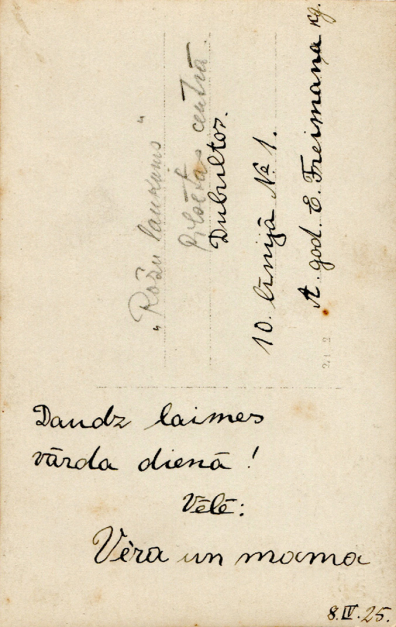 Daudz laimes
vārda dienā!
Vēlē:
Vēra un mama
8.IV.25.
A. god. E. Freimaņa kg.
10. līnijā № 1.
Dubultos.
Pilsētas centrā.
„Rožu laukums"